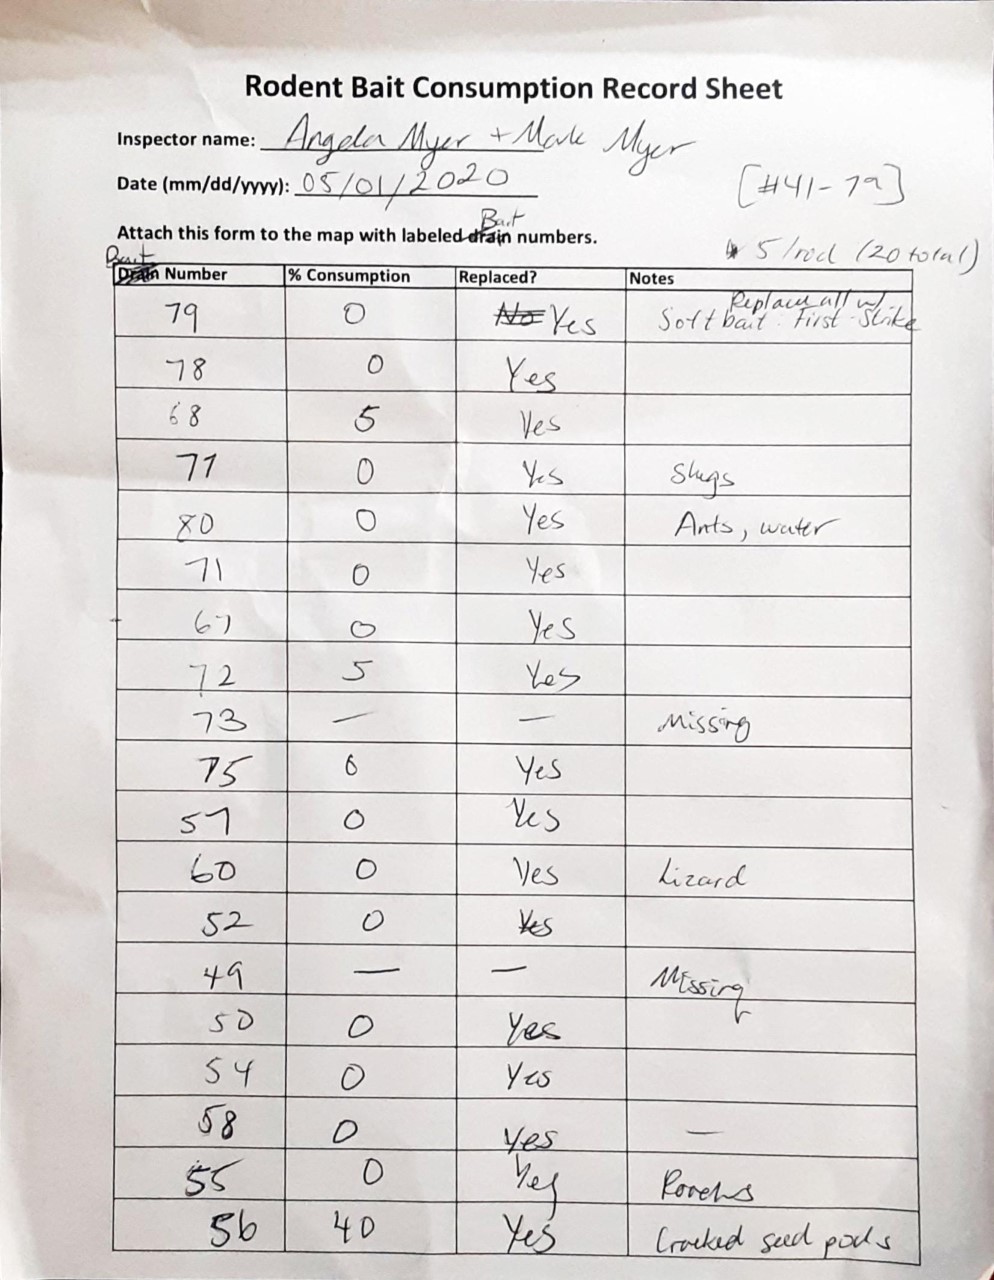 Rodent Bait Consumption Record Sheet
Inspector name: Angela Myer + Mark Myer
Date (mm/dd/yyyy): 05/01/2020 [#41-79]
Bait
Attach this form to the map with labeled drain numbers.
5/rod (20 total)
Bait
Drain Number % Consumption Replaced? Notes
Replace all w/
79 0 No Yes Soft bait. First Strike
78 0 Yes
68 5 Yes
77 0 Yes Slugs
80 0 Yes Ants, water
71 0 Yes
67 0 Yes
72 5 Yes
73 — — Missing
75 0 Yes
57 0 Yes
60 0 Yes Lizard
52 0 Yes
49 — — Missing
50 0 Yes
54 0 Yes
58 0 Yes —
55 0 Yes Roaches
56 40 Yes Cracked seed pods